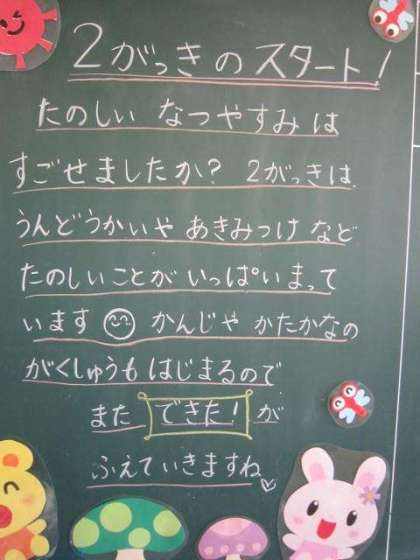 2がっきのスタート!
たのしい なつやすみは
すごせましたか? 2がっきは
うんどうかいや あきみつけ など
たのしいことが いっぱいまって
います かんじや かたかなの
がくしゅうも はじまるので
また できた! が
ふえていきますね♡